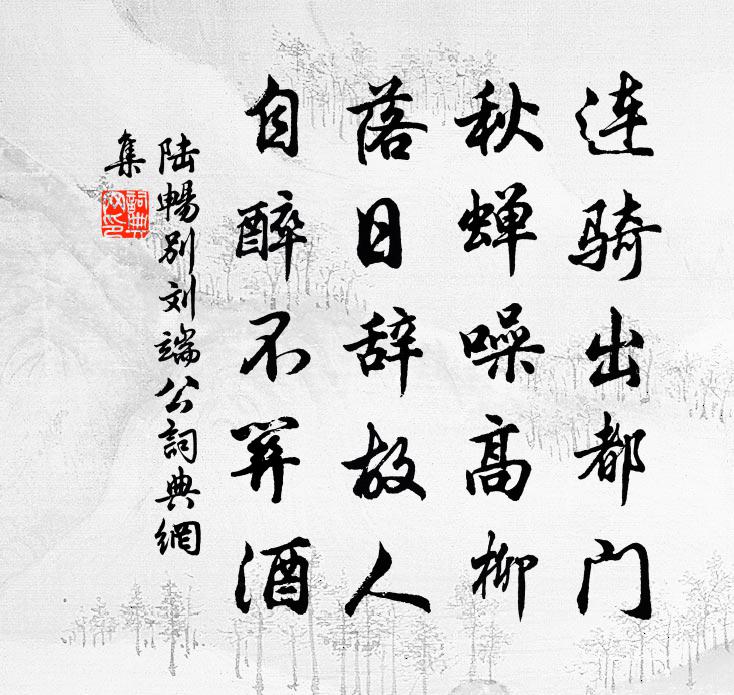 连骑出都门
秋蝉噪高柳
落日辞故人
自醉不关酒
陆暢别刘端公詞典網
集
詞典
网印